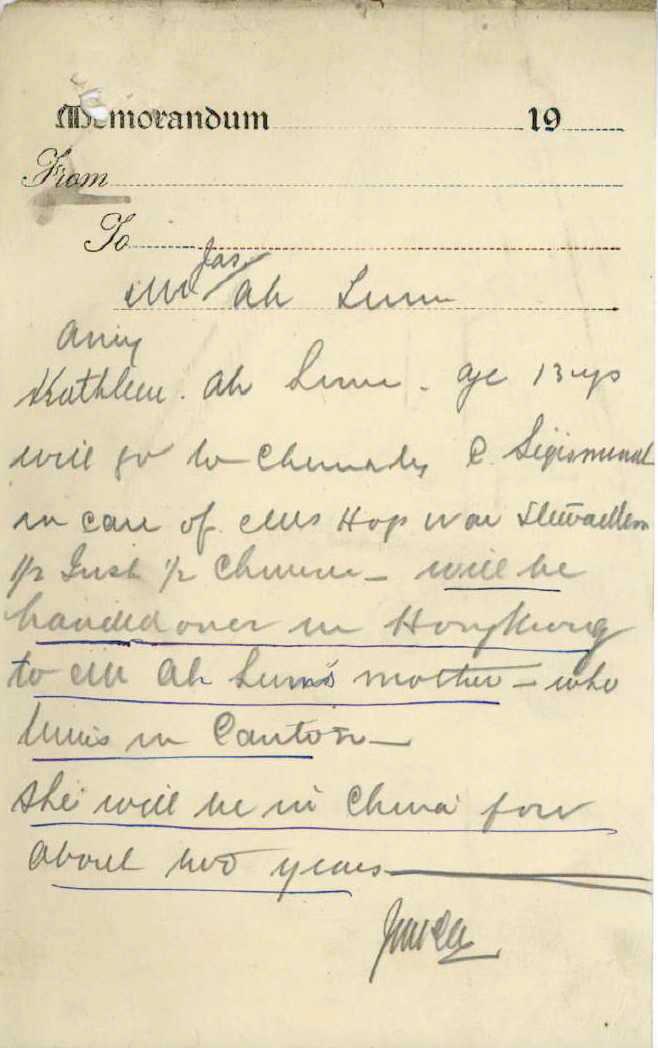 Memorandum 19
From
To
Jas
Mr Ah Lum
Amy
Kathleen. Ah Lum. age 13 yrs
will go to China by C. Sigismund
in care of Mrs Hop War
1/2 1/2 Chinese – will be
handed over in Hongkong
to Mr Ah Lum's mother – who
lives in Canton –
She will be in China for
about two years